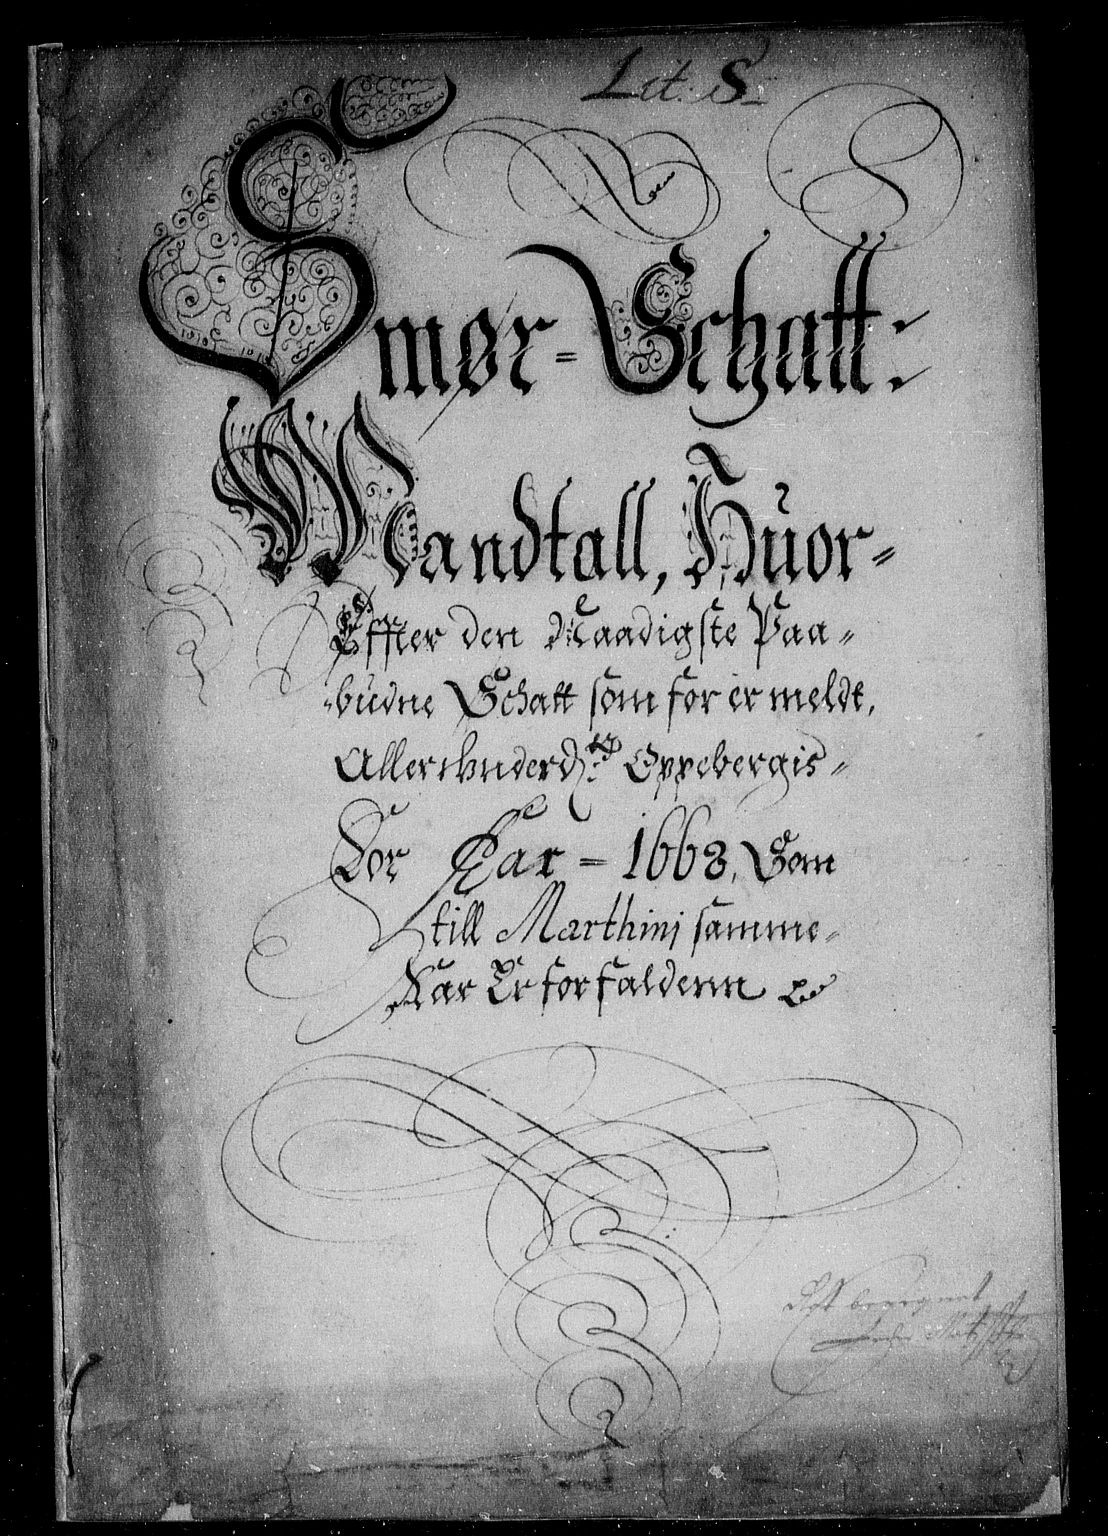 Lit. S.
Smør=Schatt:
Mandtall, Huor=
Effter den Naadigste Paa=
budne Schatt som for er meldt,
Aller wnderd: Oppebergis=
For Aar = 1663. Som
till Marthinj samme=
Aar Er forfaldenn